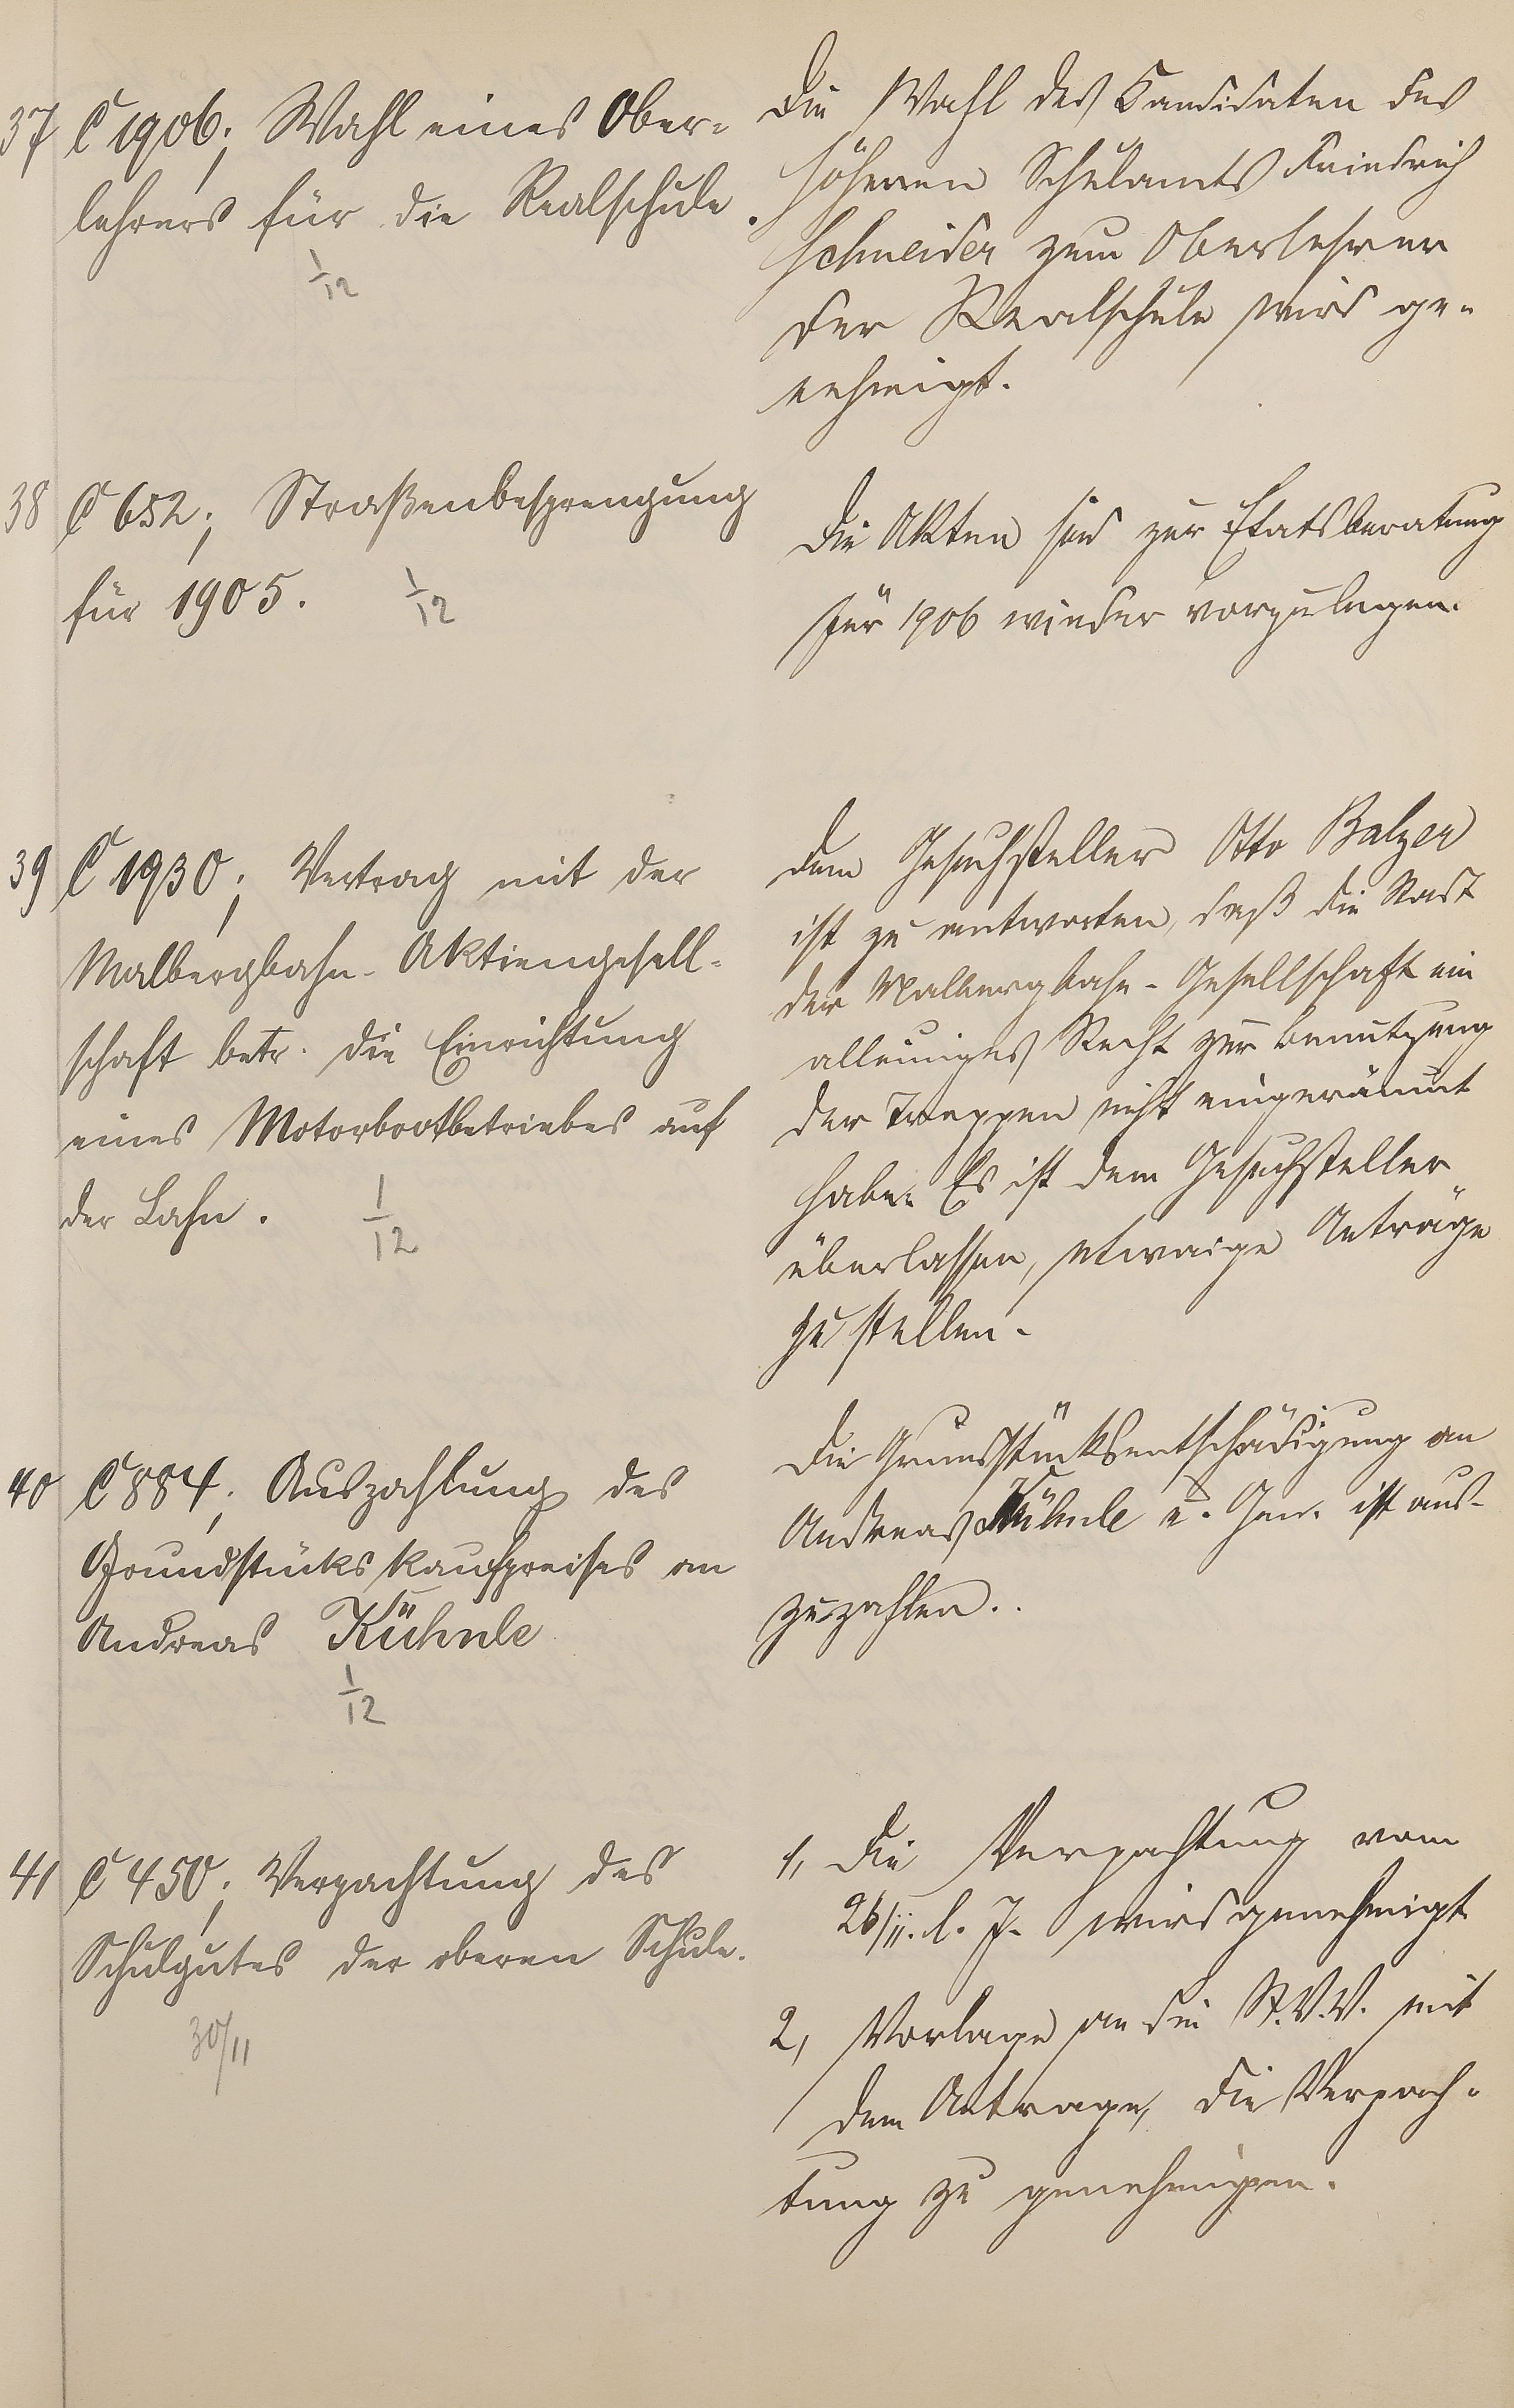 37 C 1906; Wahl eines Ober-
lehrers für die Realschule.
1/12
Die Wahl des Kandidaten des
höheren Schulamts Friedrich
Schneider zum Oberlehrer
der Realschule wird ge-
nehmigt.
38 C 652; Straßenbesprengung
für 1905.
1/12
Die Akten sind zur Etatsberatung
für 1906 wieder vorzulegen.
39 C 1930; Vertrag mit der
Malbergbahn-Aktiengesell-
schaft betr. die Einrichtung
eines Motorbootbetriebes auf
der Lahn.
1/12
Dem Gesuchsteller Otto Balzer
ist zu antworten, daß die Stadt
der Malbergbahn-Gesellschaft ein
alleiniges Recht zur Benutzung
der Treppen nicht eingeräumt
habe. Es ist dem Gesuchsteller
überlassen, etwaige Anträge
zu stellen.
40 C 884; Auszahlung des
Grundstückskaufpreises an
Andreas Kühnle
1/12
Die Grundstücksentschädigung an
Andreas Kühnle u. Gen. ist aus-
zuzahlen.
41 C 450; Verpachtung des
Schulgutes der oberen Schule.
30/11
1, Die Verpachtung vom
26/11. l. J. wird genehmigt
2, Vorlage an die St.V.V. mit
dem Antrage, die Verpach-
tung zu genehmigen.